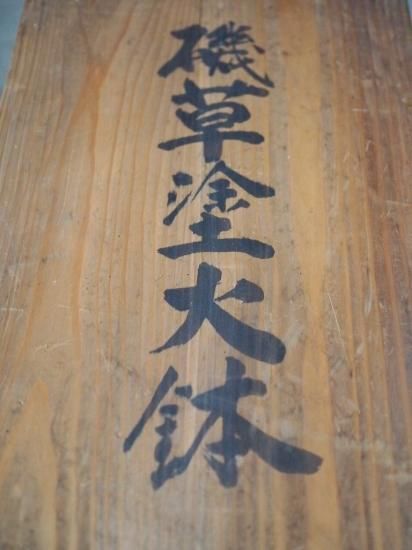 磯草塗火鉢